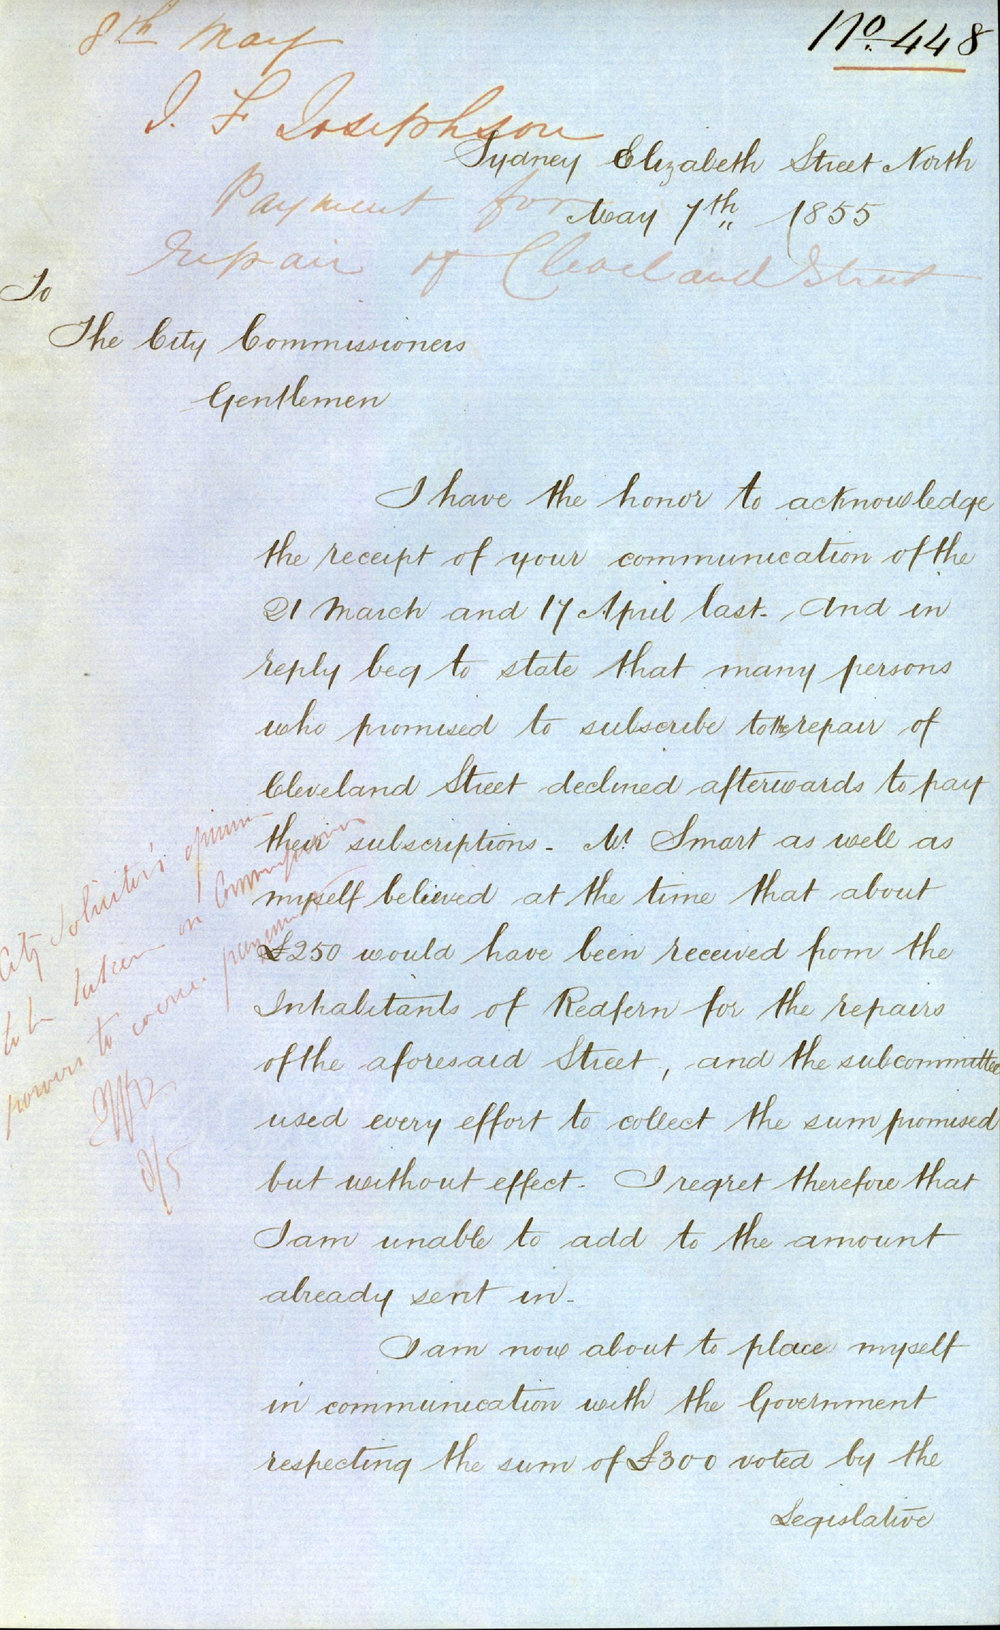 8th May
No. 448
J. F. Josephson
Sydney Elizabeth Street North
Payment for
May 7th 1855
repair of Cleveland Street
To
The City Commissioners
Gentlemen
I have the honor to acknowledge
the receipt of your communication of the
21 March and 17 April last. And in
reply beg to state that many persons
who promised to subscribe to the repair of
Cleveland Street declined afterwards to pay
their subscriptions. Mr Smart as well as
myself believed at the time that about
£250 would have been received from the
Inhabitants of Redfern for the repairs
of the aforesaid Street, and the subcommittee
used every effort to collect the sum promised
but without effect. I regret therefore that
I am unable to add to the amount
already sent in.
I am now about to place myself
in communication with the Government
respecting the sum of £300 voted by the
Legislative
City Solicitor's opinion
to be taken on Commissioners
powers to payment